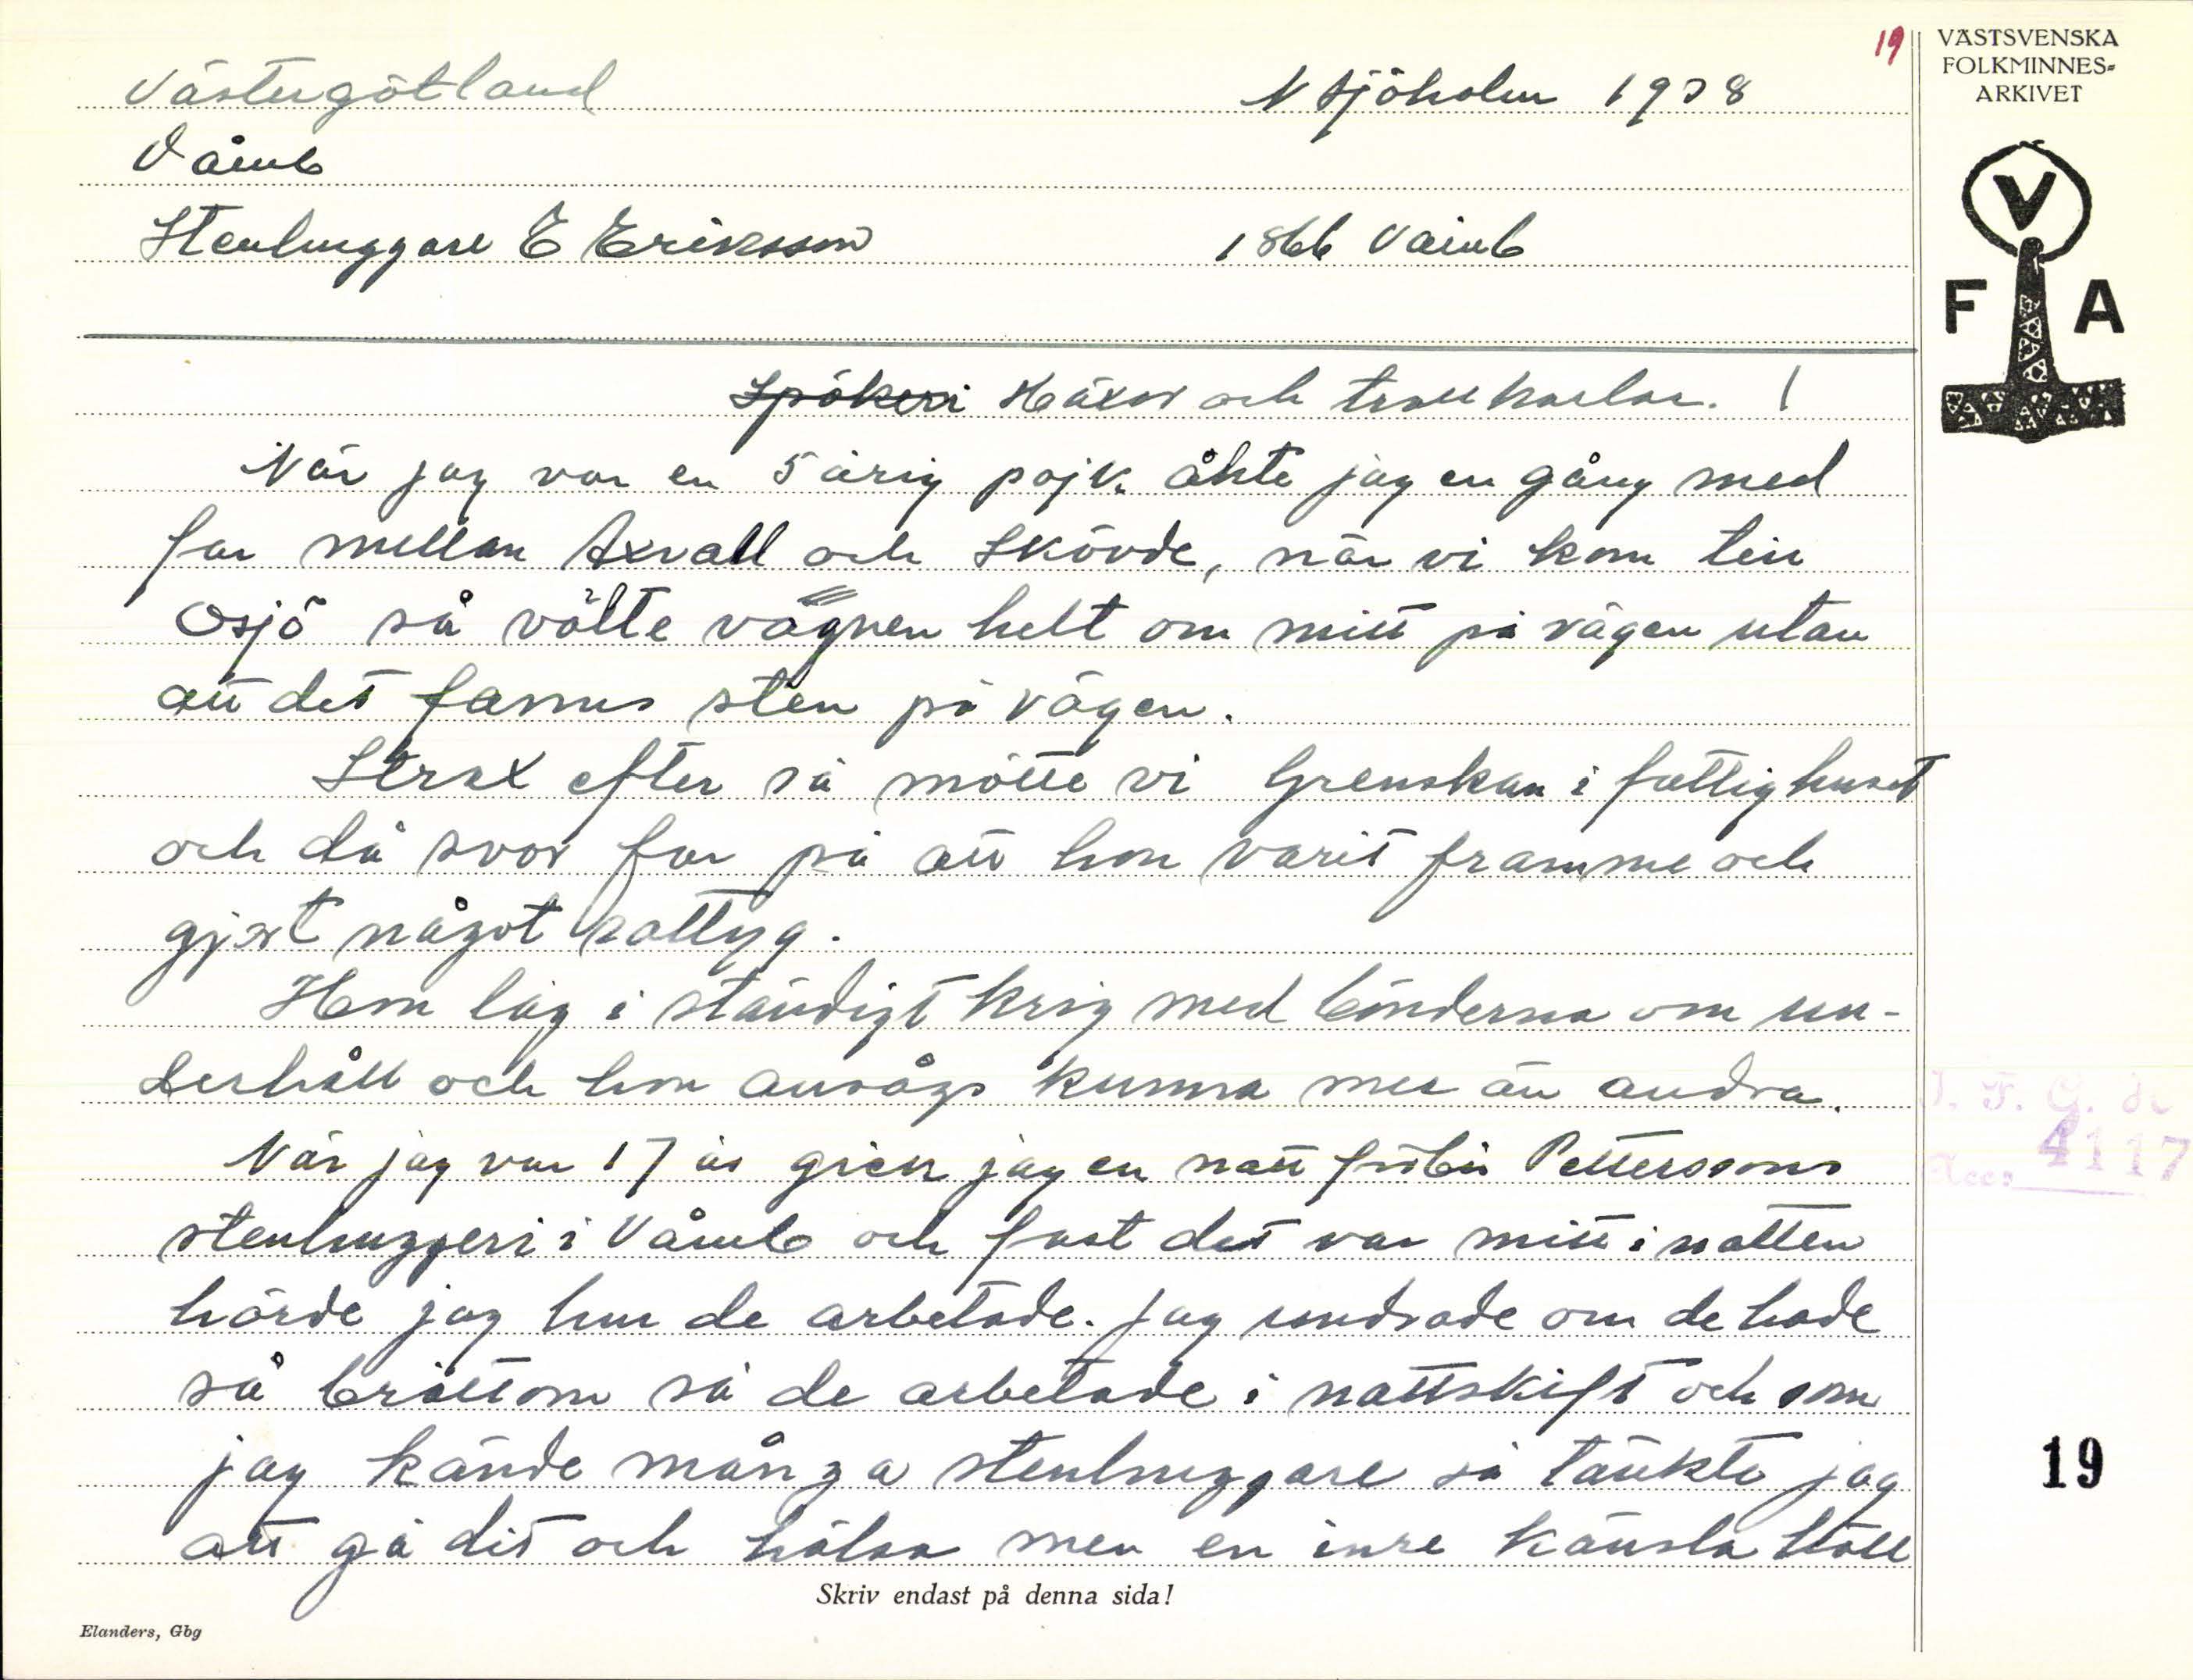 19
VÄSTSVENSKA
FOLKMINNES-
ARKIVET
V
F A
Västergötland
N Sjöholm 1938
Våmb
Stenhuggare E Eriksson
1866 Våmb
Spökeri Häxor och trollkarlar. /
När jag var en 5 årig pojk. åkte jag en gång med
far mellan Axvall och Skövde, när vi kom till
Osjö så välte vagnen helt om mitt på vägen utan
att det fanns sten på vägen.
Strax efter så mötte vi Grenskan i fattighuset
och då svor far på att hon varit framme och
gjort något rattyg.
Hon låg i ständigt krig med bönderna om un-
derhåll och hon ansågs kunna mer än andra.
När jag var 17 år gick jag en natt förbi Petterssons
stenhuggeri i Våmb och fast det var mitt i natten
hörde jag hur de arbetade. Jag undrade om de hade
så bråttom så de arbetade i nattskift och som
jag kände många stenhuggare så tänkte jag
att gå dit och hälsa men en inre känsla höll
I. F. G. S:t
Acc: 4117
19
Skriv endast på denna sida!
Elanders, Gbg